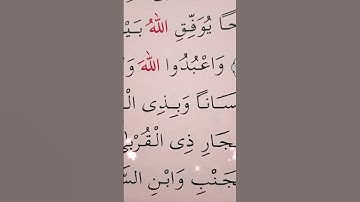 حًا يُوَفِّقِ اللّٰهُ بَيْ
وَاعْبُدُوا اللّٰهَ وَ
سَانًا وَبِذِى الْ
جَارِ ذِى الْقُرْبٰى
جَنْبِ وَابْنِ السَّ